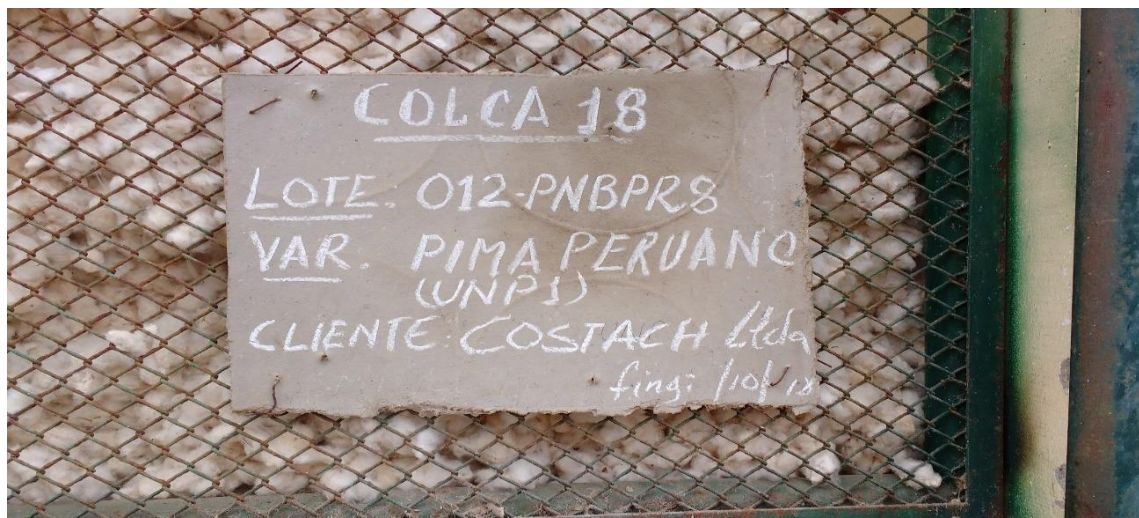 COLCA 18
LOTE. 012-PNBPR8
VAR. PIMA PERUANO
(UNP1)
CLIENTE: COSTACH Ltda
fing: /10/18